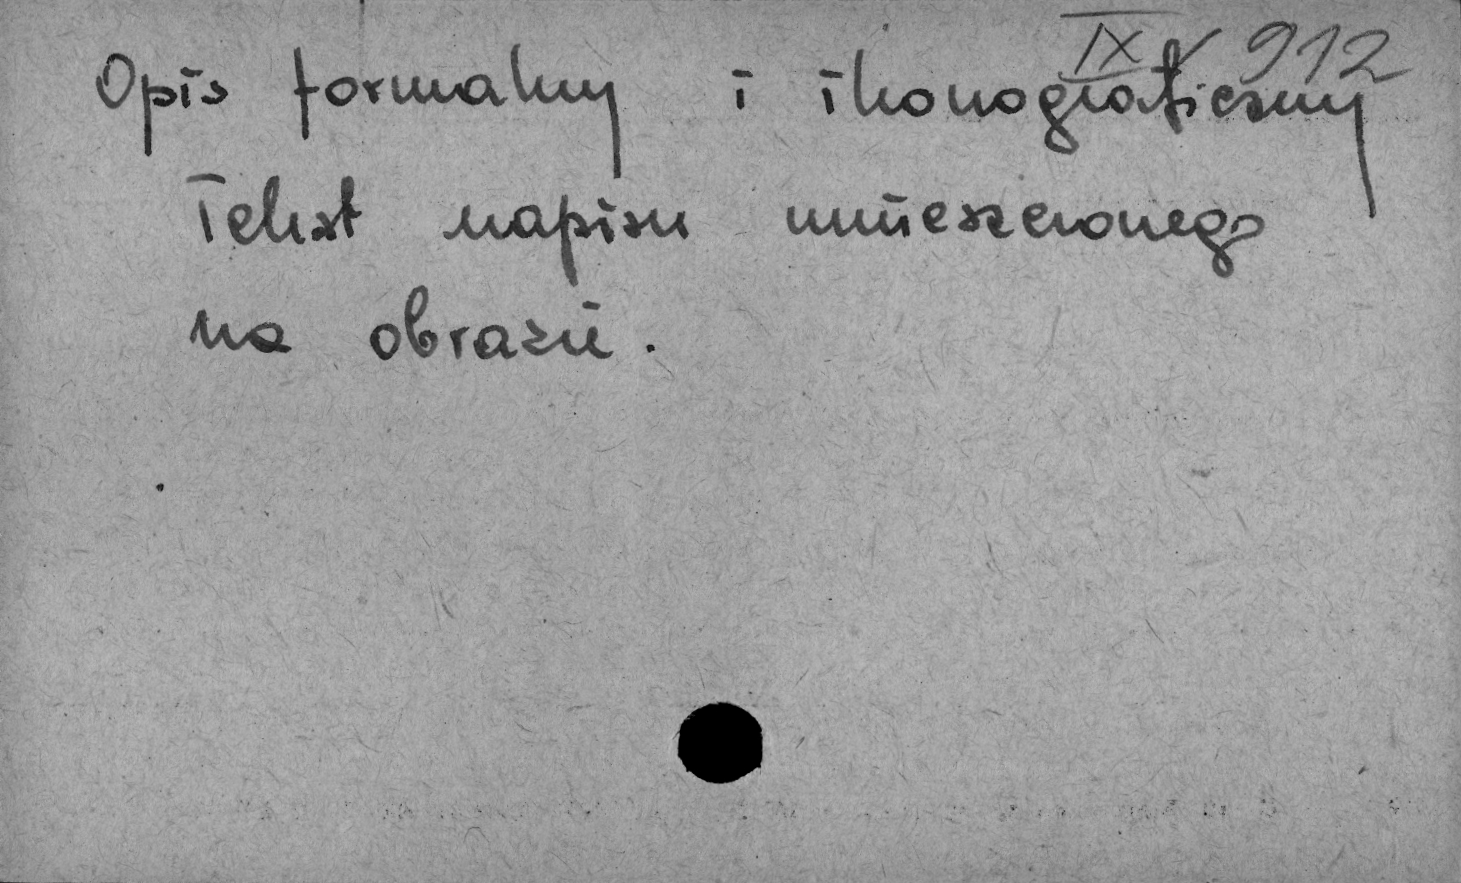 IX 912
Opis formalny i ikonograficzny
Tekst napisu umieszczonego
na obrazie.